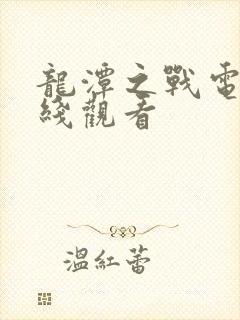 龍潭之戰電
綫觀看
溫紅蕾